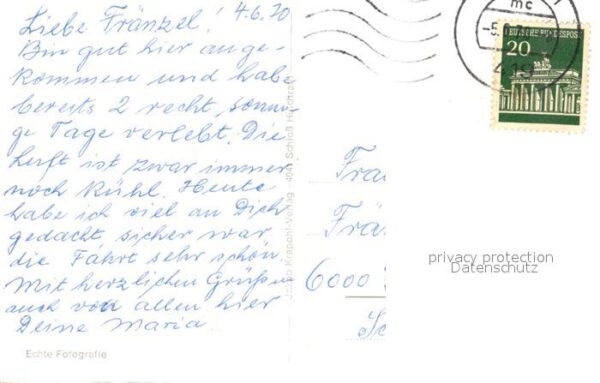 4.6.70
Liebe Fränzel!
Bin gut hier ange-
kommen und habe
bereits 2 recht sonni-
ge Tage verlebt. Die
Luft ist zwar immer
noch kühl. Heute
habe ich viel an Dich
gedacht, sicher war
die Fahrt sehr schön.
Mit herzlichen Grüßen
auch von allen hier
Deine Maria.
Echte Fotografie
Krapohl-Verlag · 404 Schloß
mc
419
DEUTSCHE BUNDESPOST
20
Frau
Frän
6000
privacy protection
Datenschutz